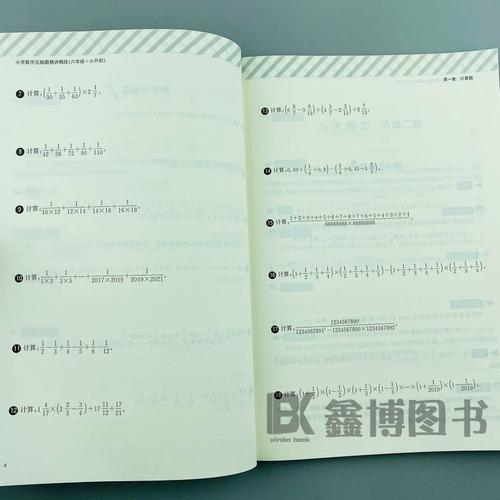 小学数学压轴题精讲精练(六年级+小升初)
7 计算:(1/30+1/35+1/63)×2 1/7。
8 计算:1/42+1/56+1/72+1/90+1/110。
9 计算:1/(10×12)+1/(12×14)+1/(14×16)+1/(16×18)。
10 计算:1/(1×3)+1/(3×5)+…+1/(2017×2019)+1/(2019×2021)。
12 计算:1 4/17×(2 2/3-3/4)+17 11/12÷17/21。
4
第一章 计算篇
15 计算:(1+2+3+4+5+6+7+8+7+6+5+4+3+2+1)/(88888888×88888888)。
16 计算:(1+1/2+1/3+1/4)×(1/2+1/3+1/4+1/5)-(1+1/2+1/3+1/4+1/5)×(1/2+1/3+1/4)。
17 计算:1234567890/(1234567891²-1234567890×1234567892)。
18 计算:(1+1/2)×(1-1/2)×(1+1/3)×(1-1/3)×…×(1+1/2019)×(1-1/2019)。
BK 鑫博图书
xinbo book